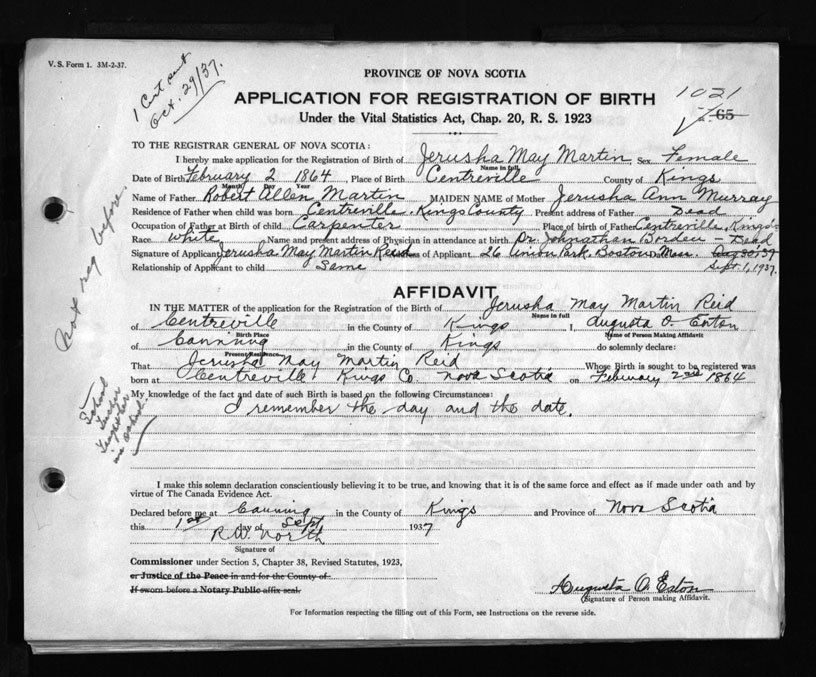 V. S. Form 1. 3M-2-37.
1 Cert sent
Oct. 29/37.
PROVINCE OF NOVA SCOTIA
APPLICATION FOR REGISTRATION OF BIRTH
Under the Vital Statistics Act, Chap. 20, R. S. 1923
1021
65
TO THE REGISTRAR GENERAL OF NOVA SCOTIA:
I hereby make application for the Registration of Birth of Jerusha May Martin, Sex Female
Name in full
Date of Birth February 2 1864, Place of Birth Centreville County of Kings
Month Day Year
Name of Father Robert Allen Martin MAIDEN NAME of Mother Jerusha Ann Murray
Residence of Father when child was born Centreville, Kings County Present address of Father Dead
Occupation of Father at Birth of child Carpenter Place of birth of Father Centreville, Kings
Race White Name and present address of Physician in attendance at birth Dr. Johnathan Borden - Dead
Signature of Applicant Jerusha May Martin Reid of Applicant 26 Union Park, Boston Mass. Aug 30, 37
Sept. 1, 1937.
Relationship of Applicant to child Same
Not reg before.
AFFIDAVIT
IN THE MATTER of the application for the Registration of the Birth of Jerusha May Martin Reid
Name in full
of Centreville in the County of Kings I, Augusta O. Eaton
Birth Place Name of Person Making Affidavit
of Canning in the County of Kings do solemnly declare:
Present Residence
That Jerusha May Martin Reid Whose Birth is sought to be registered was
born at Centreville Kings Co. Nova Scotia on February 2nd 1864
My knowledge of the fact and date of such Birth is based on the following Circumstances:
I remember the day and the date.
School
Taught her
in school.
I make this solemn declaration conscientiously believing it to be true, and knowing that it is of the same force and effect as if made under oath and by
virtue of The Canada Evidence Act.
Declared before me at Canning in the County of Kings and Province of Nova Scotia
this 1st day of Sept 1937
R. W. North
Signature of
Commissioner under Section 5, Chapter 38, Revised Statutes, 1923,
or Justice of the Peace in and for the County of
If sworn before a Notary Public affix seal.
Augusta O. Eaton
(Signature of Person making Affidavit.
For Information respecting the filling out of this Form, see Instructions on the reverse side.